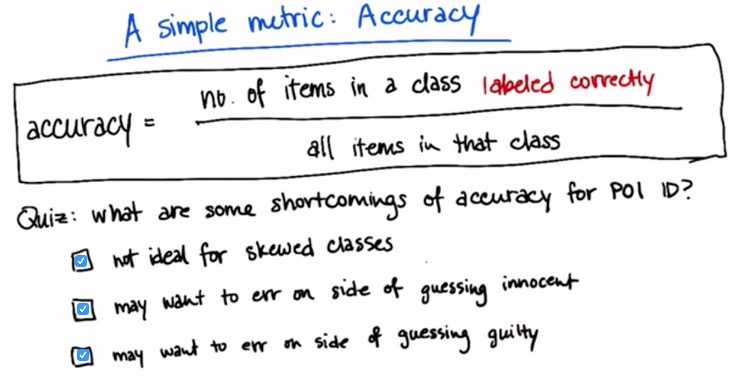 A simple metric: Accuracy
no. of items in a class labeled correctly
accuracy =
all items in that class
Quiz: what are some shortcomings of accuracy for POI ID?
not ideal for skewed classes
may want to err on side of guessing innocent
may want to err on side of guessing guilty